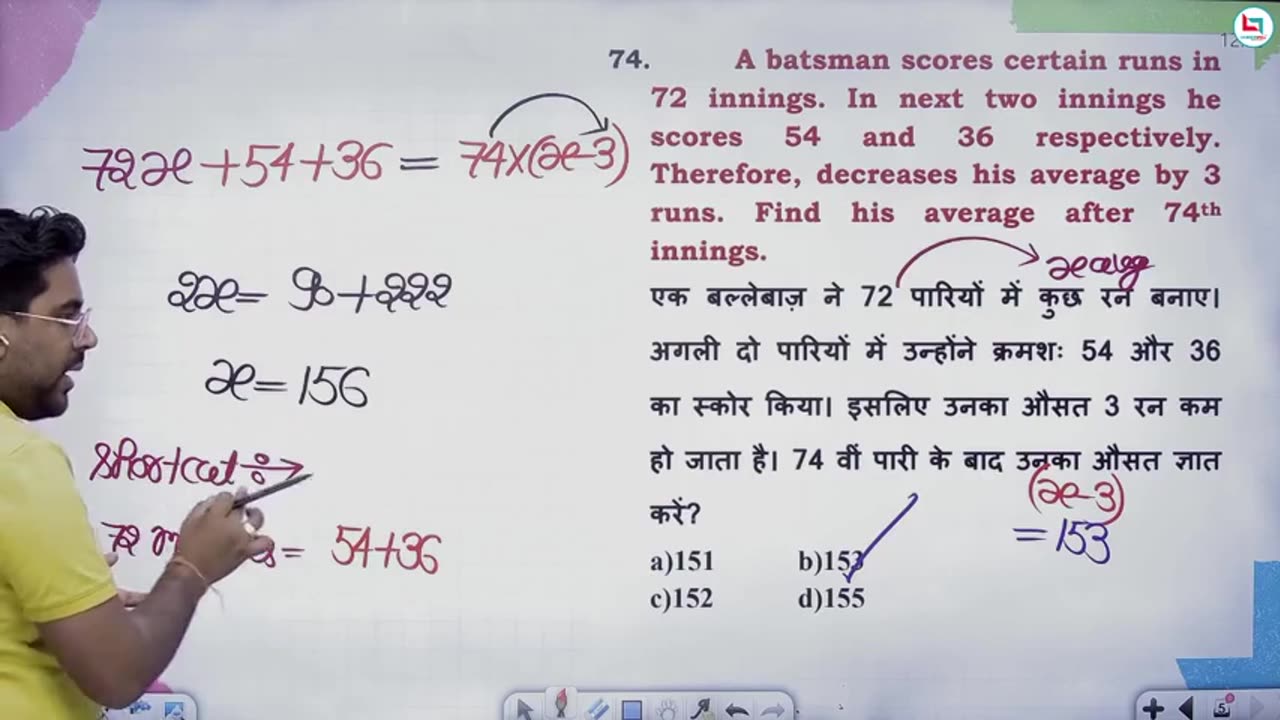 74. A batsman scores certain runs in
72 innings. In next two innings he
scores 54 and 36 respectively.
Therefore, decreases his average by 3
runs. Find his average after 74th
innings.
एक बल्लेबाज़ ने 72 पारियों में कुछ रन बनाए।
अगली दो पारियों में उन्होंने क्रमशः 54 और 36
का स्कोर किया। इसलिए उनका औसत 3 रन कम
हो जाता है। 74 वीं पारी के बाद उनका औसत ज्ञात
करें?
a)151 b)153
c)152 d)155
x avg
(x-3)
= 153
72x + 54 + 36 = 74×(x-3)
2x = 90 + 222
x = 156
Shortcut ÷→
72 = 54+36